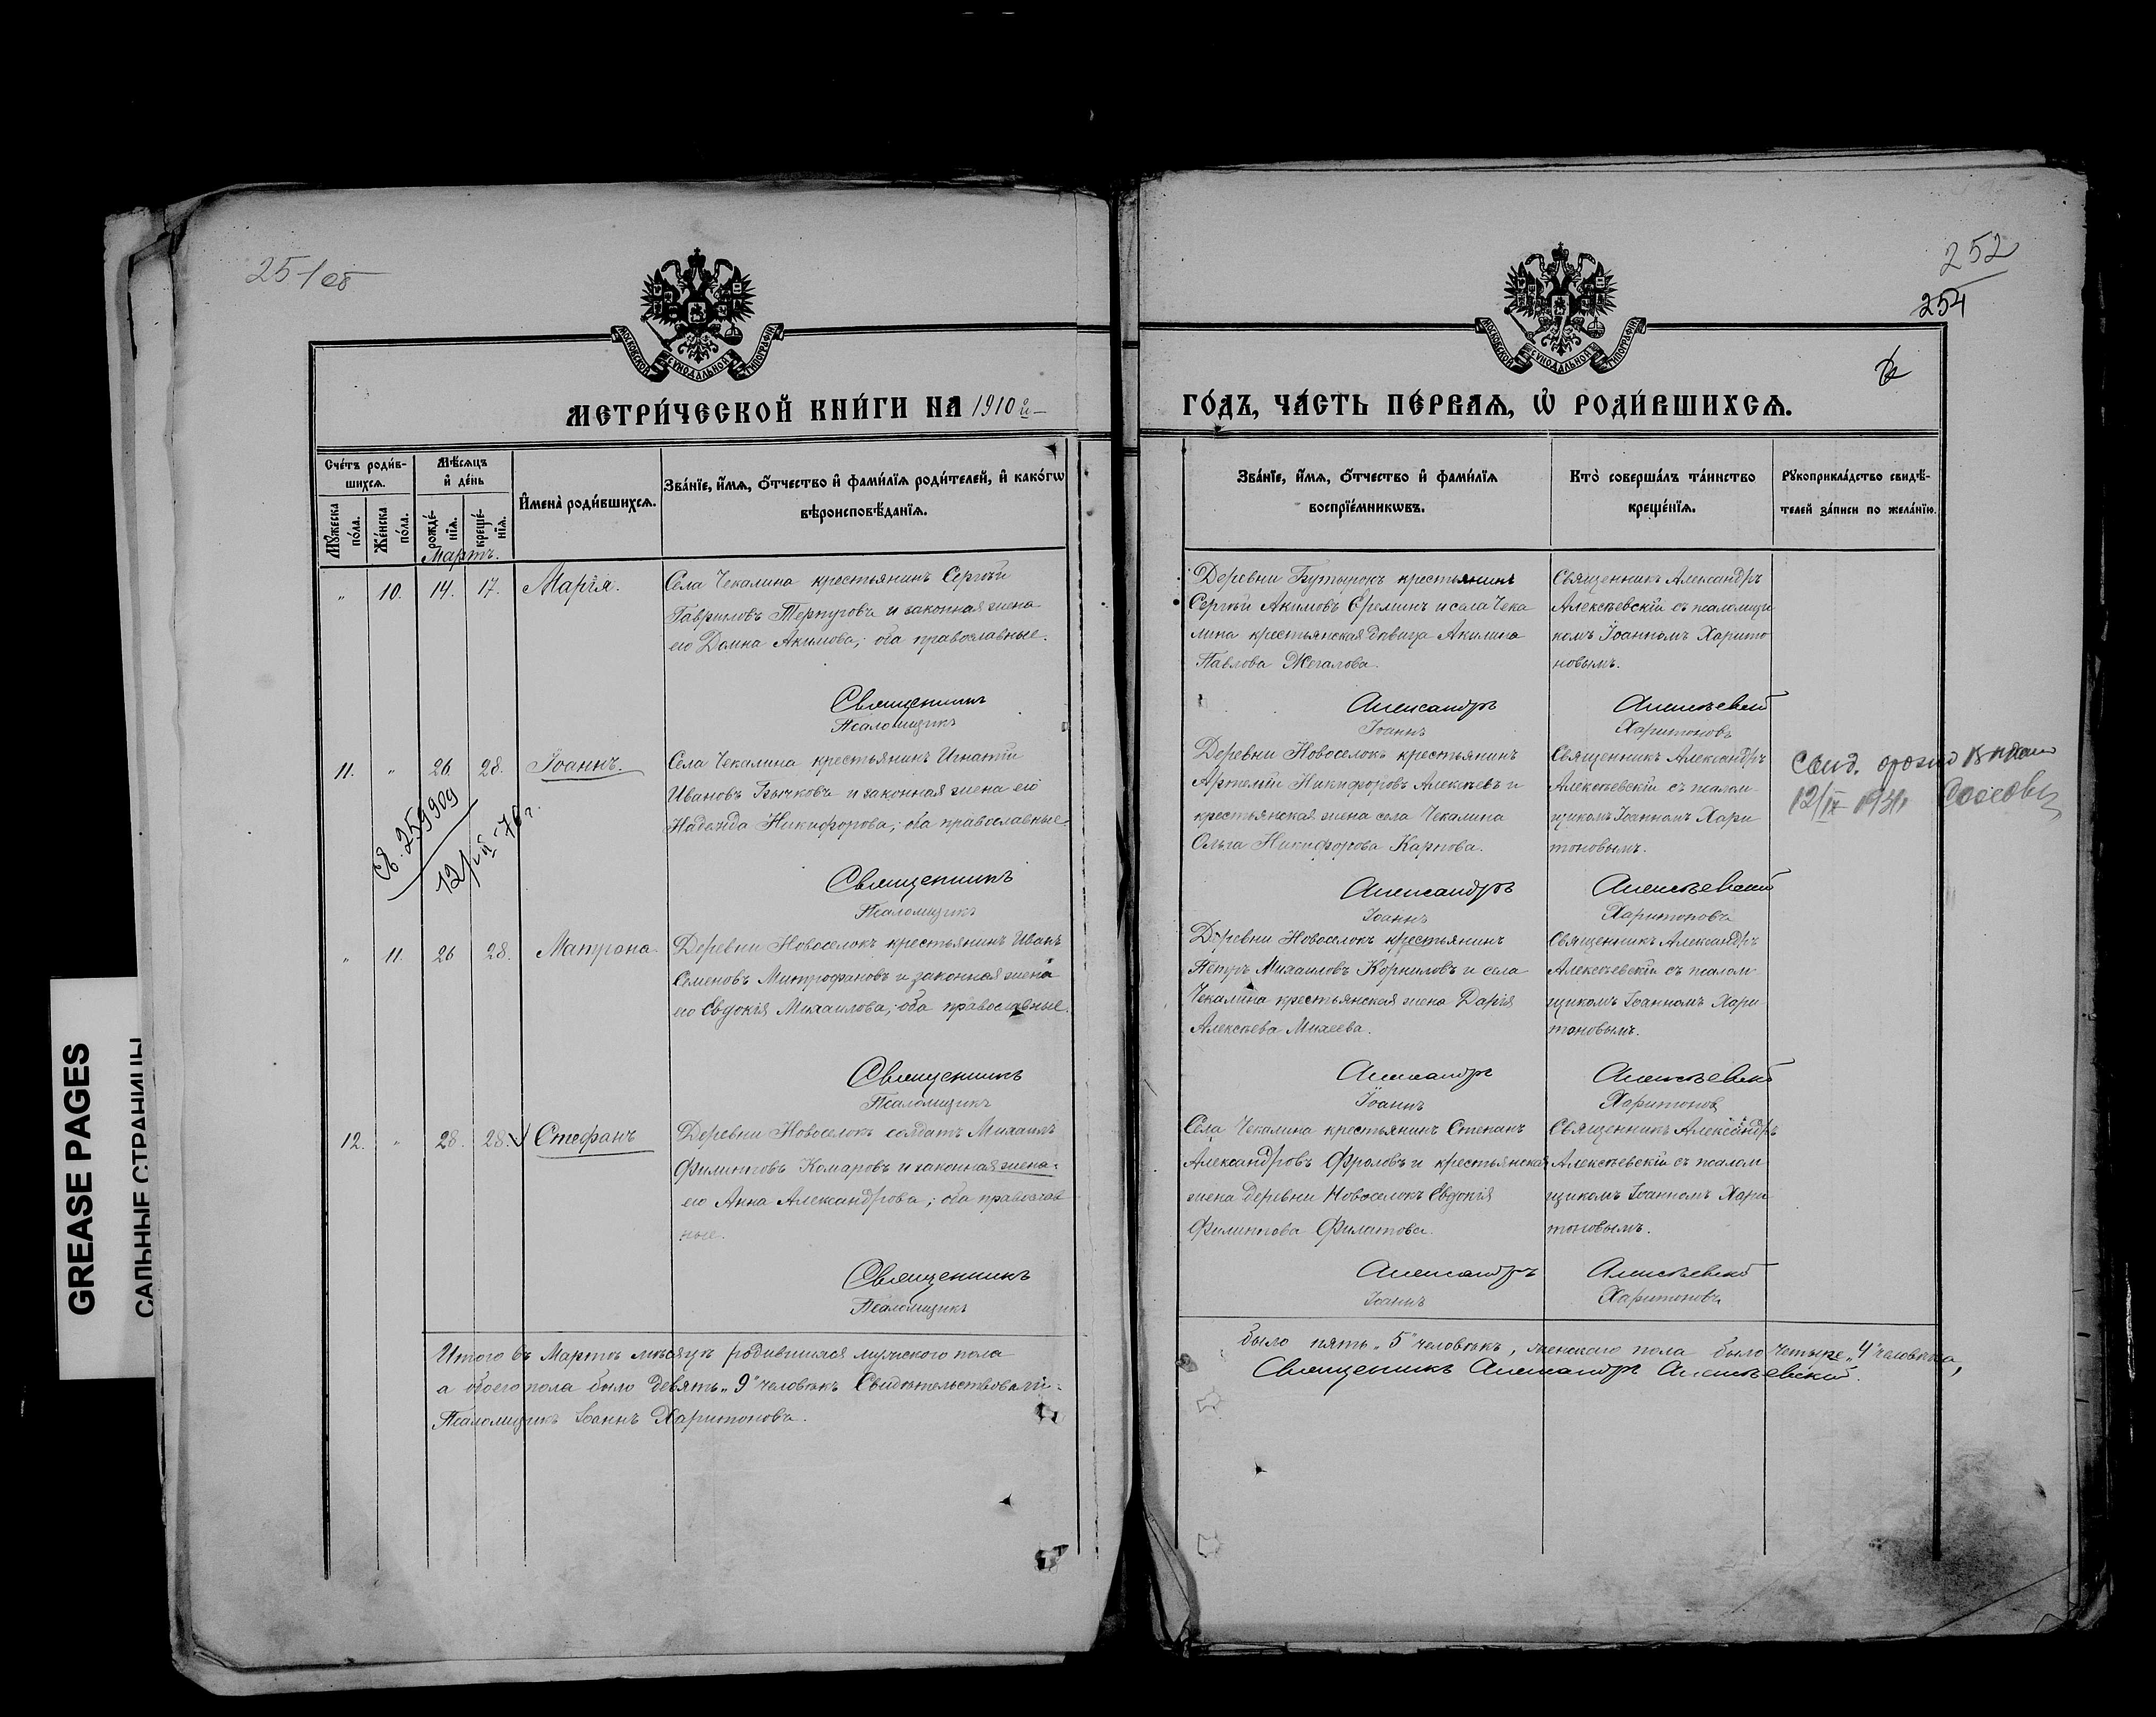 251 об
252
254
МОСКОВСКОЙ СУНОДАЛЬНОЙ ТИПОГРАФІИ
МОСКОВСКОЙ СУНОДАЛЬНОЙ ТИПОГРАФІИ
МЕТРИ́ЧЕСКОЙ КНИ́ГИ НА 1910й
ГО́ДЪ, ЧА́СТЬ ПЕ́РВАѦ, Ѡ҆ РОДИ́ВШИХСѦ.
Сче́тъ роди́в-
шихсѧ.
Мꙋ́жеска по́ла.
Же́нска по́ла.
Мѣ́сѧцъ
и҆ де́нь
рожде́-
нїѧ.
креще́-
нїѧ.
И҆мена̀ роди́вшихсѧ.
Зва́нїе, и҆́мѧ, ѻ҆́тчество и҆ фами́лїѧ роди́телей, и҆ како́гѡ
вѣроисповѣ́данїѧ.
Зва́нїе, и҆́мѧ, ѻ҆́тчество и҆ фами́лїѧ
воспрїе́мникѡвъ.
Кто̀ соверша́лъ та́инство
креще́нїѧ.
Рꙋкоприкла́дство свидѣ́-
телей за́писи по жела́нїю.
Мартъ.
" 10. 14. 17. Марія.
Села Чекалина крестьянинъ Сергѣй
Гавриловъ Терпуговъ и законная жена
его Домна Акимова; оба православные.
Священникъ
Псаломщикъ
Деревни Бутырокъ крестьянинъ
Сергѣй Акимовъ Ереминъ и села Чека
лина крестьянская дѣвица Акилина
Павлова Жегалова.
Александръ
Іоаннъ
Священникъ Александръ
Алексѣевскій съ псаломщи
комъ Іоанномъ Харито
новымъ.
Алексѣевскій
Харитоновъ
11. " 26. 28. Іоаннъ.
Села Чекалина крестьянинъ Игнатій
Ивановъ Бычковъ и законная жена его
Надежда Никифорова; оба православные.
св. 259909
Священникъ
Псаломщикъ
Деревни Новоселокъ крестьянинъ
Артемій Никифоровъ Алексѣевъ и
крестьянская жена села Чекалина
Ольга Никифорова Карпова.
Александръ
Іоаннъ
Священникъ Александръ
Алексѣевскій съ псалом-
щикомъ Іоанномъ Хари
тоновымъ.
Алексѣевскій
Харитоновъ
" 11. 26 28. Матрона.
Деревни Новоселокъ крестьянинъ Иванъ
Семеновъ Митрофановъ и законная жена
его Евдокія Михаилова; оба православные.
Священникъ
Псаломщикъ
Деревни Новоселокъ крестьянинъ
Петръ Михаиловъ Корниловъ и села
Чекалина крестьянская жена Дарія
Алексѣева Михеева.
Александръ
Іоаннъ
Священникъ Александръ
Алексѣевскій съ псалом
щикомъ Іоанномъ Хари
тоновымъ.
Алексѣевскій
Харитоновъ
12. " 28. 28. Стефанъ
Деревни Новоселокъ солдатъ Михаилъ
Филипповъ Комаровъ и законная жена
его Анна Александрова; оба православ
ные.
Священникъ
Псаломщикъ
Села Чекалина крестьянинъ Степанъ
Александровъ Фроловъ и крестьянская
жена деревни Новоселокъ Евдокія
Филиппова Филатова.
Александръ
Іоаннъ
Священникъ Александръ
Алексѣевскій съ псалом
щикомъ Іоанномъ Хари
тоновымъ.
Алексѣевскій
Харитоновъ
Итого въ Мартѣ мѣсяцѣ родившихся мужского пола
было пять „5" человѣкъ, женскаго пола было четыре „4" человѣка,
а обоего пола было девять „9" человѣкъ Свидѣтельствовали:
Священникъ Александръ Алексѣевскій.
Псаломщикъ Іоаннъ Харитоновъ.
GREASE PAGES
САЛЬНЫЕ СТРАНИЦЫ